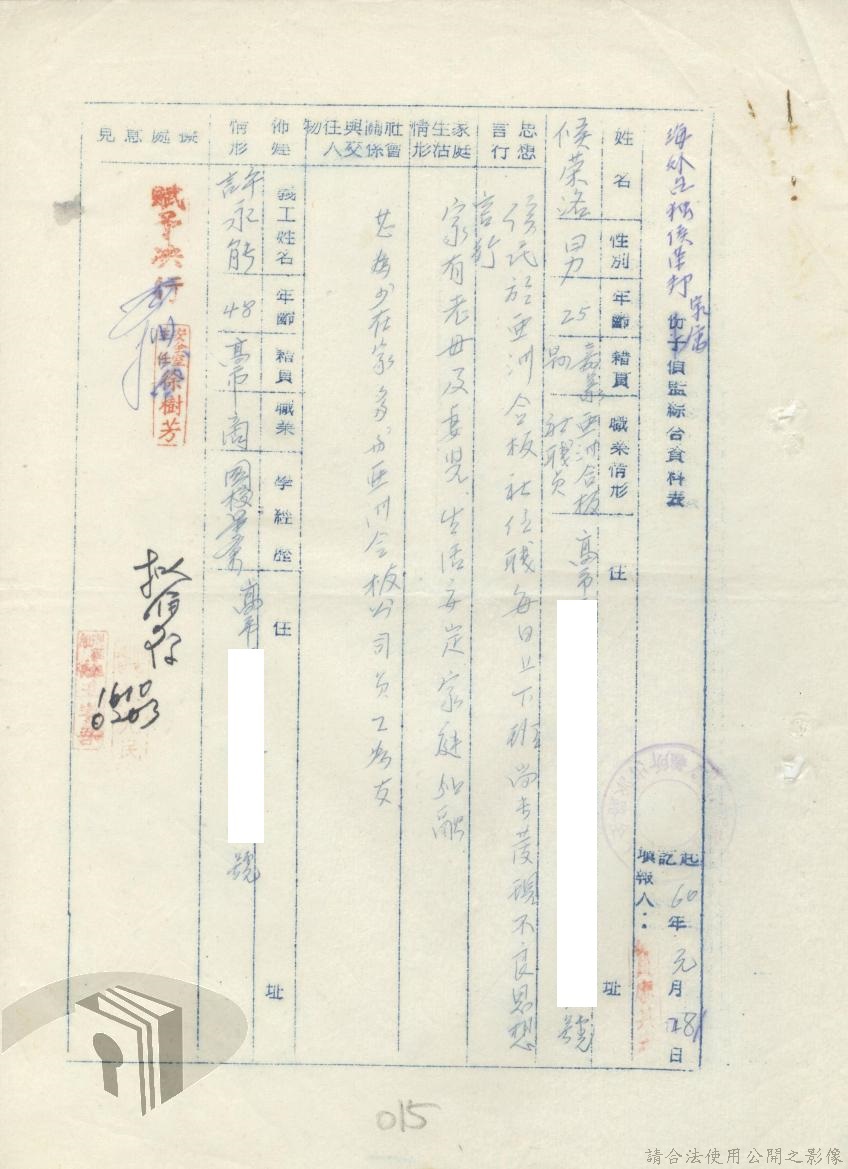 海外台獨侯榮邦家屬份子偵監綜合資料表
起訖 60年元月28日
填報人：
姓名
性別
年齡
籍貫
職業情形
住
址
侯榮洛
男
25
嘉義縣
亞洲合板社職員
高市
號
思想言行
侯氏於亞洲合板社任職每日上下班尚未發現不良思想
言行
家庭生活情形
家有老母及妻兒生活安定家庭和融
社會關係與交往人物
甚為少在家多為亞洲合板公司員工為友
佈建情形
義工姓名
年齡
籍貫
職業
學經歷
住
址
許永能
48
高市
商
國校畢業
高市
號
擬處意見
賦予央行
主任徐樹芳
擬備存
1610
0203
015
請合法使用公開之影像